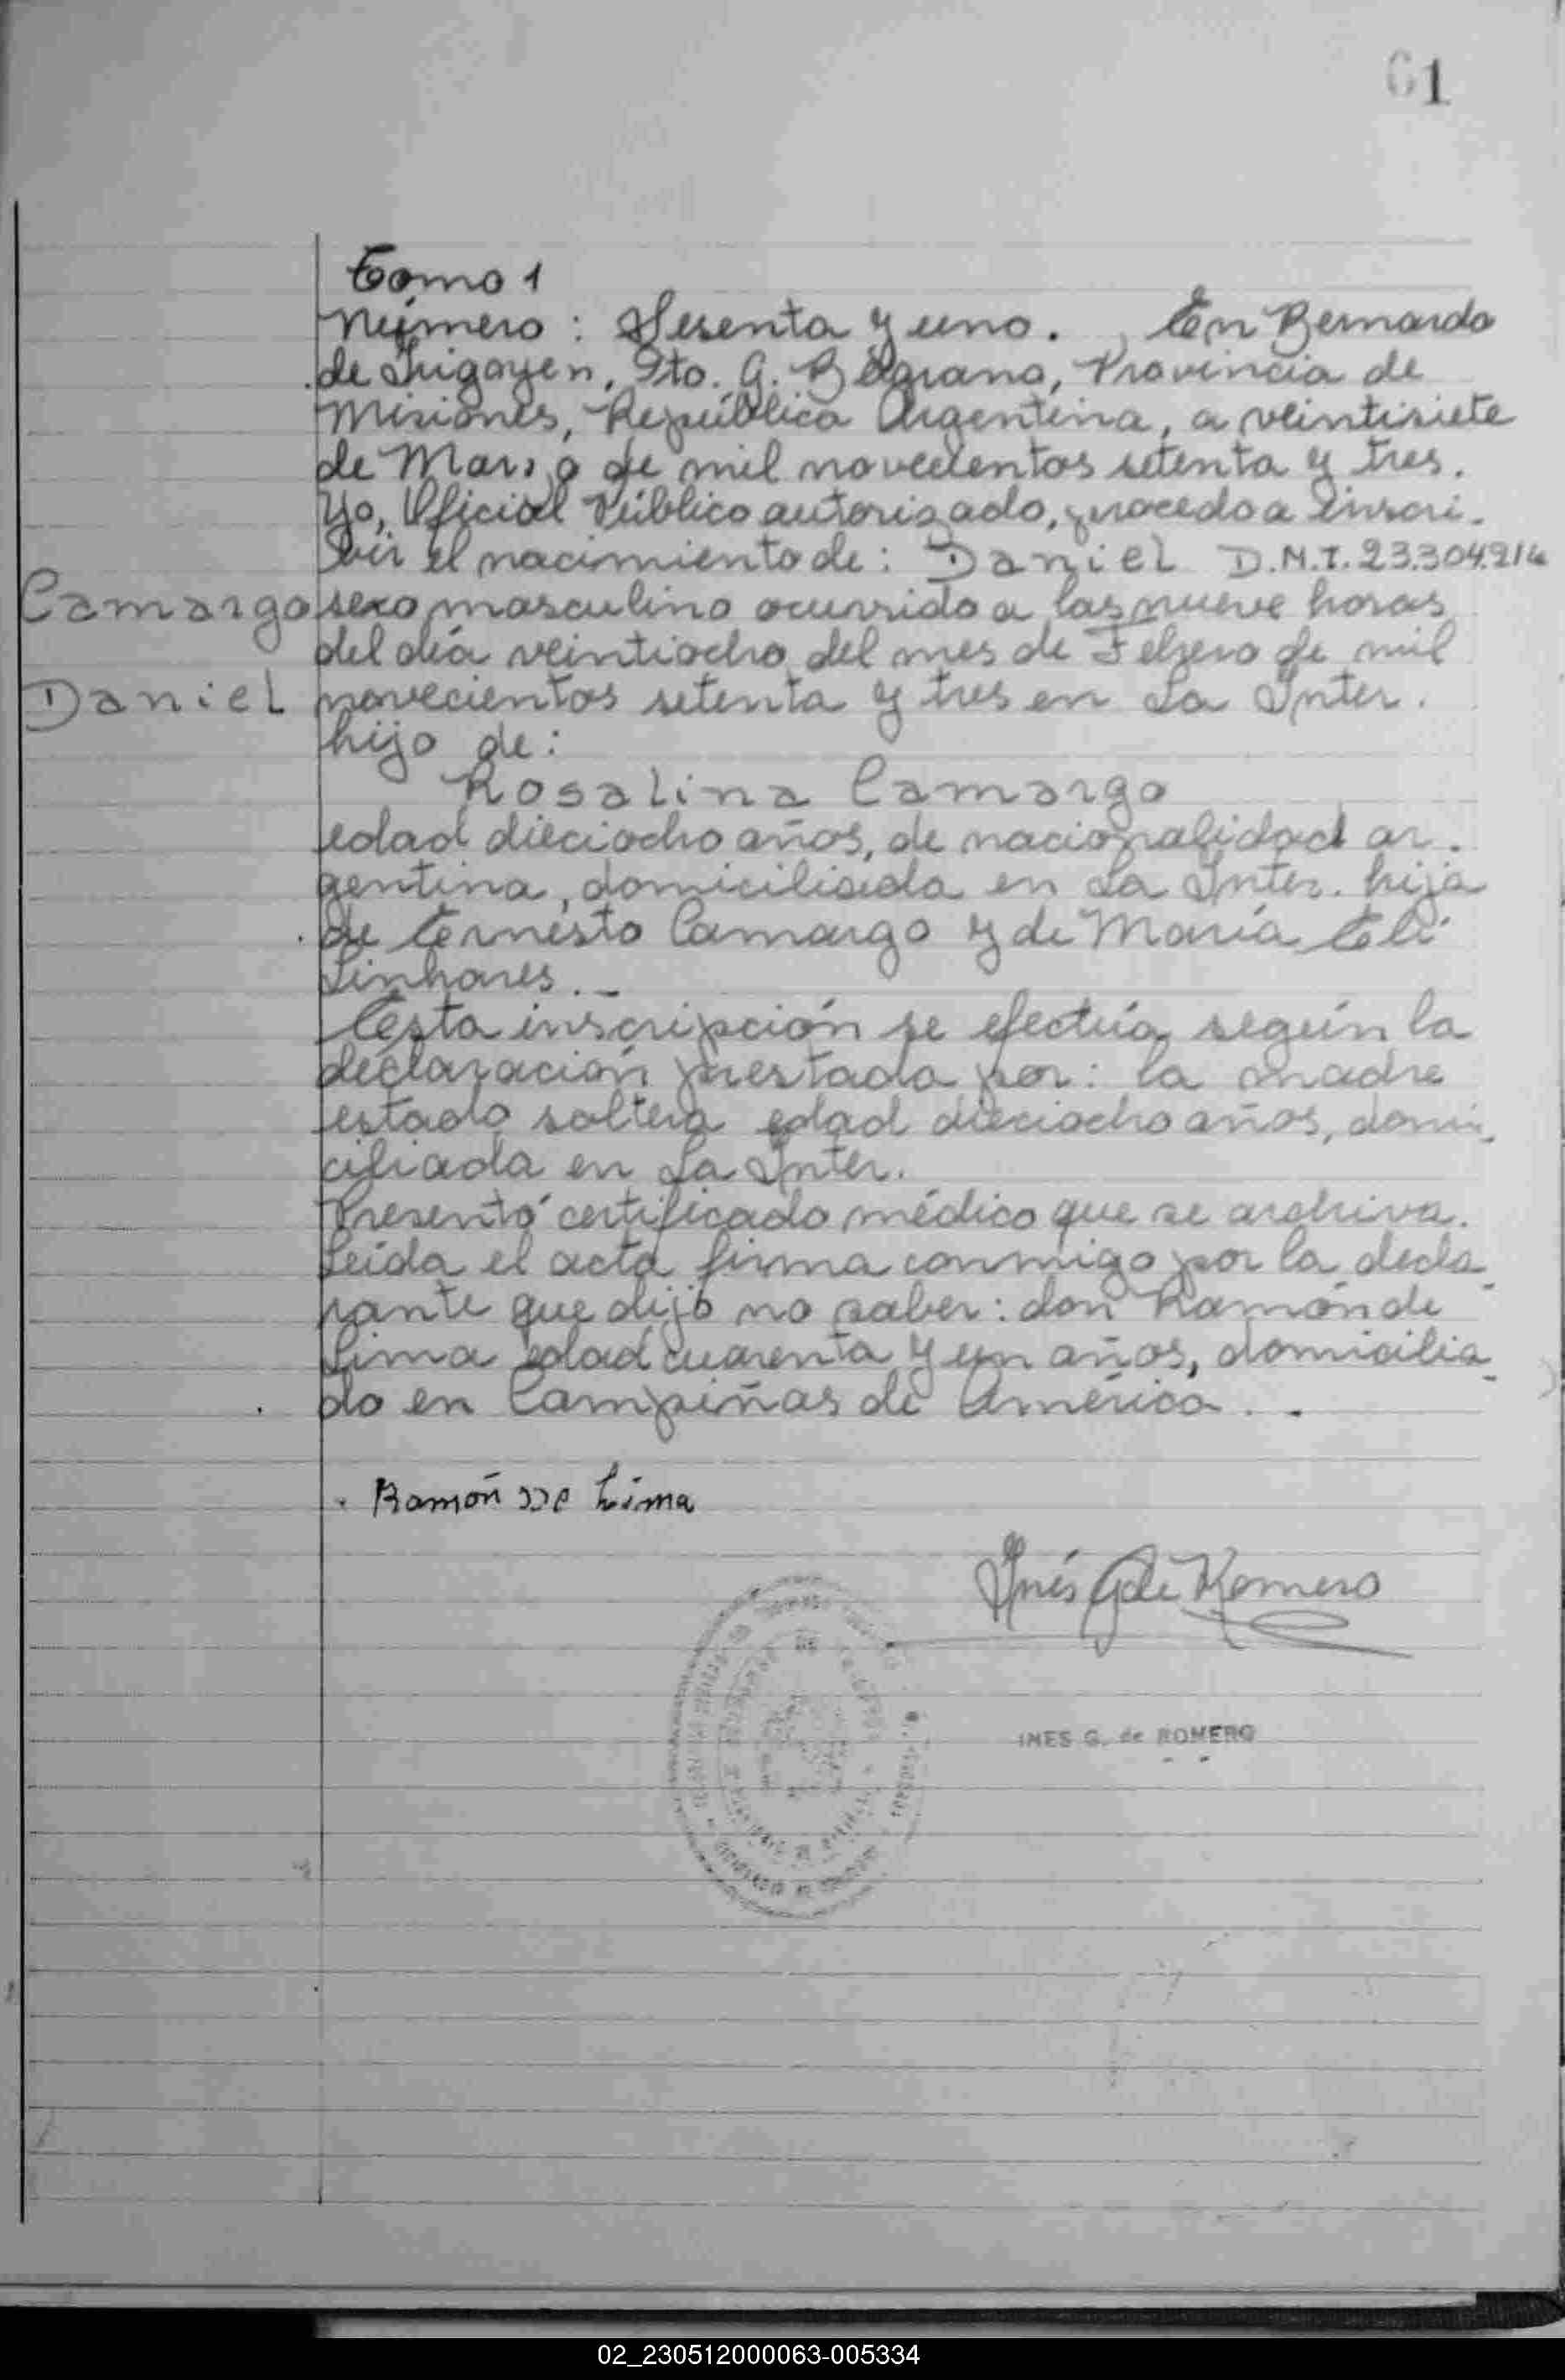 61
Tomo 1
Número: Sesenta y uno. En Bernardo
de Irigoyen, Dto. G. Belgrano, Provincia de
Misiones, República Argentina, a veintisiete
de Marzo de mil novecientos setenta y tres.
Yo, Oficial Público autorizado, procedo a inscri-
bir el nacimiento de: Daniel D.N.I. 23.304.214
Camargo sexo masculino ocurrido a las nueve horas
del día veintiocho del mes de Febrero de mil
Daniel novecientos setenta y tres en La Inter.
hijo de:
Rosalina Camargo
edad dieciocho años, de nacionalidad ar-
gentina, domiciliada en La Inter. hija
de Ernesto Camargo y de María Eli
Linhares.-
Esta inscripción se efectúa según la
declaración prestada por: la madre
estado soltera edad dieciocho años, domi-
ciliada en La Inter.
Presentó certificado médico que se archiva.
Leída el acta firma conmigo por la decla-
rante que dijo no saber: don Ramón de
Lima edad cuarenta y un años, domicilia-
do en Campiñas de América. .
Ramón de Lima
Inés G de Romero
INES G. de ROMERO
02_230512000063-005334